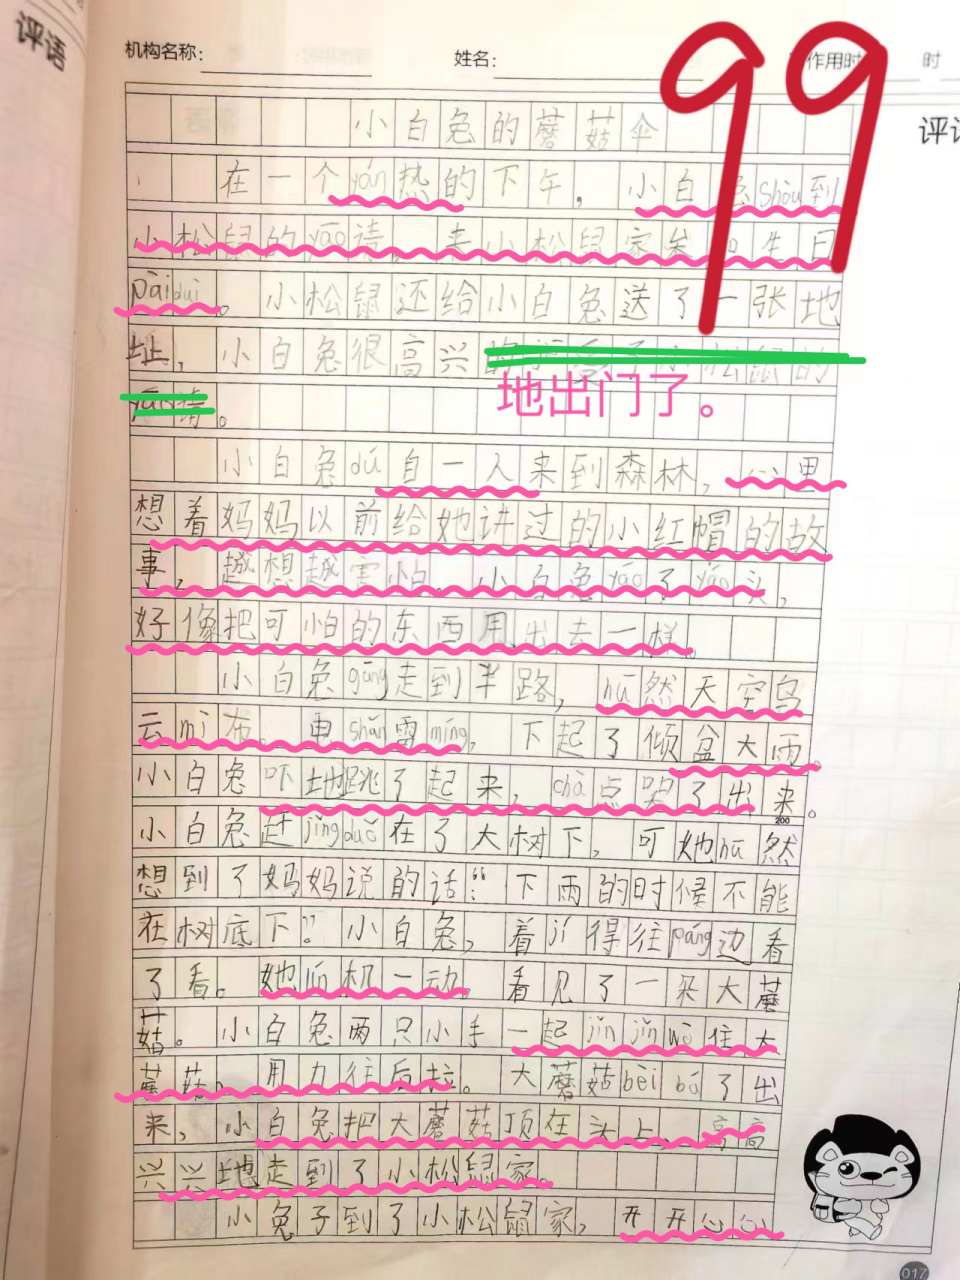 评语
机构名称：
姓名：
作用时
时
99
评语
小白兔的蘑菇伞
在一个yán热的下午，小白兔shōu到
小松鼠的yāo请，来小松鼠家参加生日
pàiduì。小松鼠还给小白兔送了一张地
址，小白兔很高兴的接受了小松鼠的
yāo请。
地出门了。
小白兔dú自一人来到森林，心里
想着妈妈以前给她讲过的小红帽的故
事，越想越害怕。小白兔yáo了yáo头，
好像把可怕的东西甩出去一样。
小白兔gāng走到半路，hū然天空乌
云mì布。电shǎn雷míng，下起了倾盆大雨。
小白兔吓地跳了起来，chà点哭了出来。
200
小白兔赶jǐngduǒ在了大树下，可她hū然
想到了妈妈说的话：“下雨的时候不能
在树底下”小白兔，着jí得往páng边看
了看。她lín机一动，看见了一朵大蘑
菇。小白兔两只小手一起jǐnjǐnwò住大
蘑菇，用力往后拉。大蘑菇bèibá了出
来，小白兔把大蘑菇顶在头上，高高
兴兴地走到了小松鼠家。
小兔子到了小松鼠家，开开心心
017